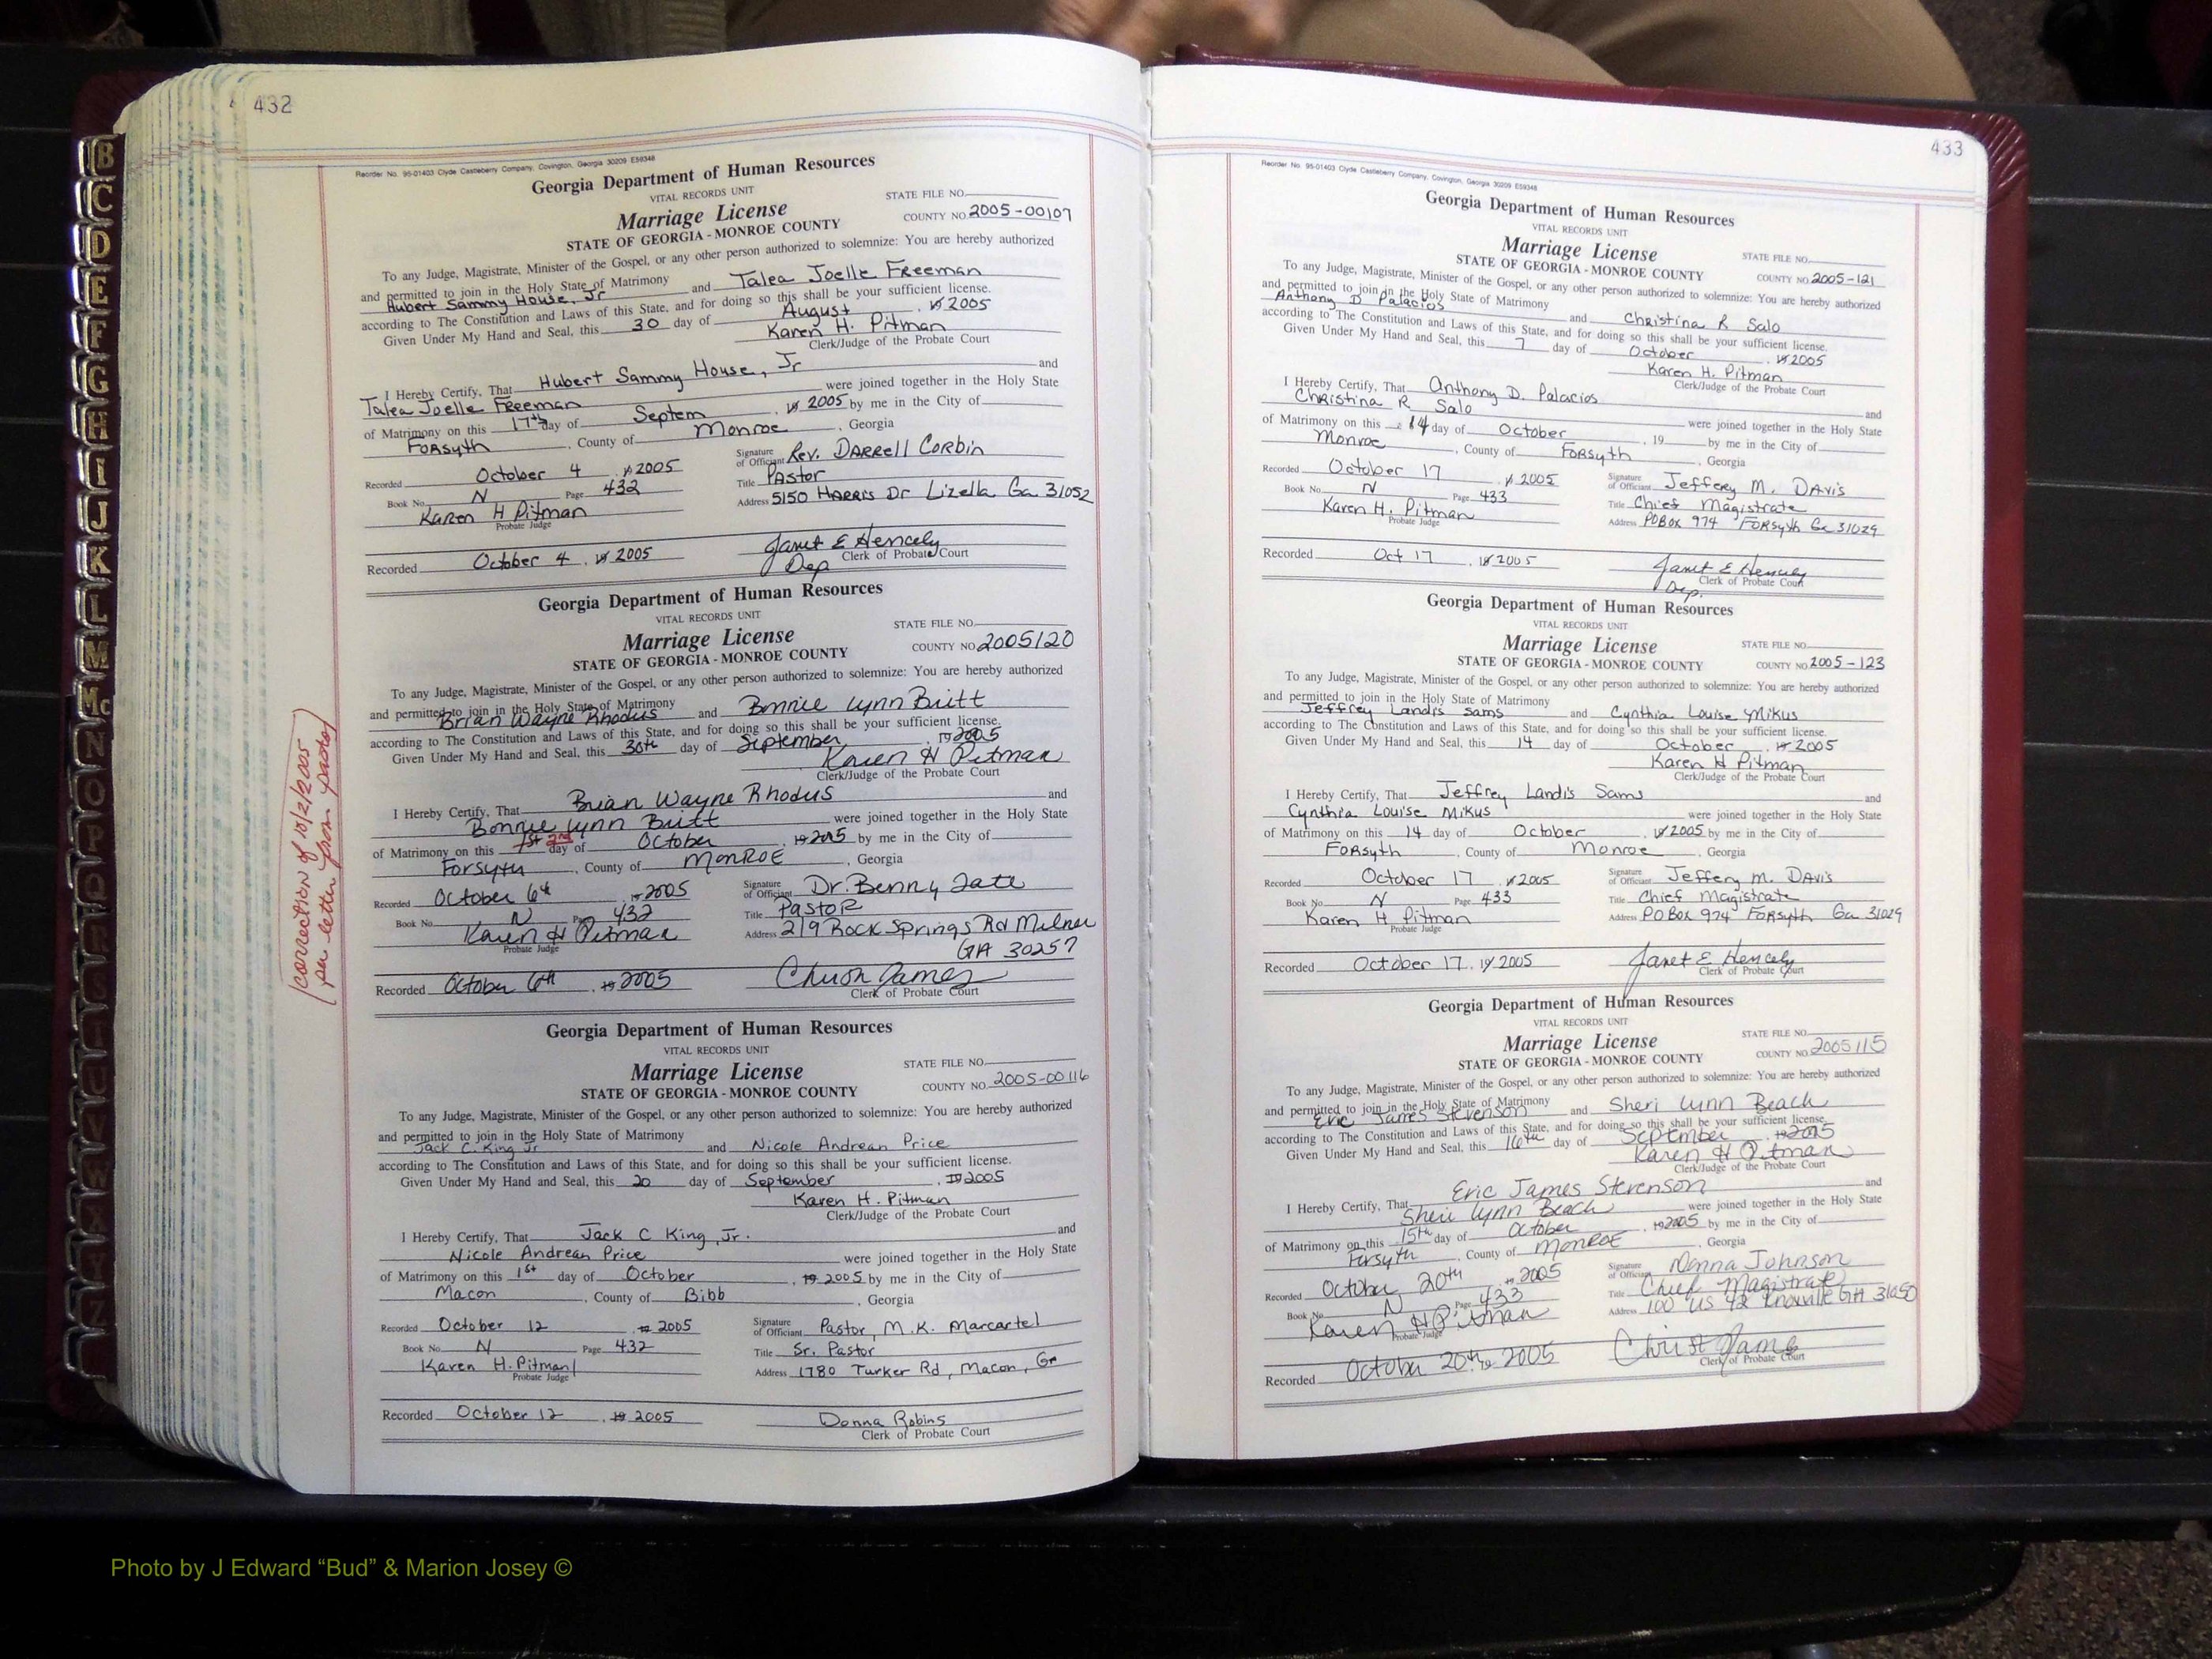 432
Reorder No. 95-01403 Clyde Castleberry Company, Covington, Georgia 30209 E59348
Georgia Department of Human Resources
VITAL RECORDS UNIT
STATE FILE NO.
Marriage License
COUNTY NO. 2005-00107
STATE OF GEORGIA - MONROE COUNTY
To any Judge, Magistrate, Minister of the Gospel, or any other person authorized to solemnize: You are hereby authorized
and permitted to join in the Holy State of Matrimony
Hubert Sammy House, Jr and Talea Joelle Freeman
according to The Constitution and Laws of this State, and for doing so this shall be your sufficient license.
Given Under My Hand and Seal, this 30 day of August, 19 2005
Karen H. Pitman
Clerk/Judge of the Probate Court
I Hereby Certify, That Hubert Sammy House, Jr and
Talea Joelle Freeman were joined together in the Holy State
of Matrimony on this 17th day of Septem, 19 2005 by me in the City of
Forsyth, County of Monroe, Georgia
Recorded October 4, 19 2005 Signature of Officiant Rev. DARRELL CORBIN
Book No. N Page 432 Title Pastor
Karen H Pitman Address 5150 HARRIS Dr Lizella Ga 31052
Probate Judge
Recorded October 4, 19 2005 Janet E Hencely
Dep Clerk of Probate Court
Georgia Department of Human Resources
VITAL RECORDS UNIT
STATE FILE NO.
Marriage License
COUNTY NO. 2005120
STATE OF GEORGIA - MONROE COUNTY
To any Judge, Magistrate, Minister of the Gospel, or any other person authorized to solemnize: You are hereby authorized
and permitted to join in the Holy State of Matrimony
Brian Wayne Rhodus and Bonnie Lynn Britt
according to The Constitution and Laws of this State, and for doing so this shall be your sufficient license.
Given Under My Hand and Seal, this 30th day of September, 19 2005
Karen H Pitman
Clerk/Judge of the Probate Court
I Hereby Certify, That Brian Wayne Rhodus and
Bonnie Lynn Britt were joined together in the Holy State
of Matrimony on this 1st 2nd day of October, 19 2005 by me in the City of
Forsyth, County of MONROE, Georgia
Recorded October 6th, 19 2005 Signature of Officiant Dr. Benny Tate
Book No. N Page 432 Title Pastor
Karen H Pitman Address 219 Rock Springs Rd Milner
Probate Judge GA 30257
Recorded October 6th, 19 2005
Clerk of Probate Court
(correction of 10/2/2005
per letter from pastor)
Georgia Department of Human Resources
VITAL RECORDS UNIT
STATE FILE NO.
Marriage License
COUNTY NO. 2005-00116
STATE OF GEORGIA - MONROE COUNTY
To any Judge, Magistrate, Minister of the Gospel, or any other person authorized to solemnize: You are hereby authorized
and permitted to join in the Holy State of Matrimony
Jack C. King Jr and Nicole Andrean Price
according to The Constitution and Laws of this State, and for doing so this shall be your sufficient license.
Given Under My Hand and Seal, this 20 day of September, 19 2005
Karen H. Pitman
Clerk/Judge of the Probate Court
I Hereby Certify, That Jack C King, Jr. and
Nicole Andrean Price were joined together in the Holy State
of Matrimony on this 1st day of October, 19 2005 by me in the City of
Macon, County of Bibb, Georgia
Recorded October 12, 19 2005 Signature of Officiant Pastor, M.K. Marcartel
Book No. N Page 432 Title Sr. Pastor
Karen H. Pitman Address 1780 Turker Rd, Macon, GA
Probate Judge
Recorded October 12, 19 2005 Donna Robins
Clerk of Probate Court
433
Reorder No. 95-01403 Clyde Castleberry Company, Covington, Georgia 30209 E59348
Georgia Department of Human Resources
VITAL RECORDS UNIT
Marriage License
STATE FILE NO.
STATE OF GEORGIA - MONROE COUNTY
COUNTY NO. 2005-121
To any Judge, Magistrate, Minister of the Gospel, or any other person authorized to solemnize: You are hereby authorized
and permitted to join in the Holy State of Matrimony
Anthony D Palacios and Christina R Salo
according to The Constitution and Laws of this State, and for doing so this shall be your sufficient license.
Given Under My Hand and Seal, this 7 day of October, 19 2005
Karen H. Pitman
Clerk/Judge of the Probate Court
I Hereby Certify, That Anthony D. Palacios and
Christina R Salo were joined together in the Holy State
of Matrimony on this 14 day of October, 19 by me in the City of
Monroe, County of Forsyth, Georgia
Recorded October 17, 19 2005 Signature of Officiant Jeffery M. DAVIS
Book No. N Page 433 Title Chief Magistrate
Karen H. Pitman Address POBox 974 Forsyth Ga 31029
Probate Judge
Recorded Oct 17, 19 2005 Janet E Hencely
Clerk of Probate Court
Dep.
Georgia Department of Human Resources
VITAL RECORDS UNIT
Marriage License
STATE FILE NO.
STATE OF GEORGIA - MONROE COUNTY
COUNTY NO. 2005-123
To any Judge, Magistrate, Minister of the Gospel, or any other person authorized to solemnize: You are hereby authorized
and permitted to join in the Holy State of Matrimony
Jeffrey Landis Sams and Cynthia Louise Mikus
according to The Constitution and Laws of this State, and for doing so this shall be your sufficient license.
Given Under My Hand and Seal, this 14 day of October, 19 2005
Karen H Pitman
Clerk/Judge of the Probate Court
I Hereby Certify, That Jeffrey Landis Sams and
Cynthia Louise Mikus were joined together in the Holy State
of Matrimony on this 14 day of October, 19 2005 by me in the City of
Forsyth, County of Monroe, Georgia
Recorded October 17, 19 2005 Signature of Officiant Jeffery M. DAVIS
Book No. N Page 433 Title Chief Magistrate
Karen H. Pitman Address P.O Box 974 Forsyth Ga 31029
Probate Judge
Recorded October 17, 19 2005 Janet E Hencely
Clerk of Probate Court
Georgia Department of Human Resources
VITAL RECORDS UNIT
Marriage License
STATE FILE NO.
STATE OF GEORGIA - MONROE COUNTY
COUNTY NO. 2005115
To any Judge, Magistrate, Minister of the Gospel, or any other person authorized to solemnize: You are hereby authorized
and permitted to join in the Holy State of Matrimony
Eric James Stevenson and Sheri Lynn Beach
according to The Constitution and Laws of this State, and for doing so this shall be your sufficient license.
Given Under My Hand and Seal, this 16th day of September, 19 2005
Karen H Pitman
Clerk/Judge of the Probate Court
I Hereby Certify, That Eric James Stevenson and
Sheri Lynn Beach were joined together in the Holy State
of Matrimony on this 15th day of October, 19 2005 by me in the City of
Forsyth, County of MONROE, Georgia
Recorded October 20th, 19 2005 Signature of Officiant Donna Johnson
Book No. N Page 433 Title Chief Magistrate
Karen H Pitman Address 100 US 42 Knoxville GA 31050
Probate Judge
Recorded October 20th, 19 2005
Clerk of Probate Court
B
C
D
E
F
G
H
I
J
K
L
M
Mc
N
O
P
Q
R
S
T
U
V
W
X
Y
Z
Photo by J Edward “Bud” & Marion Josey ©